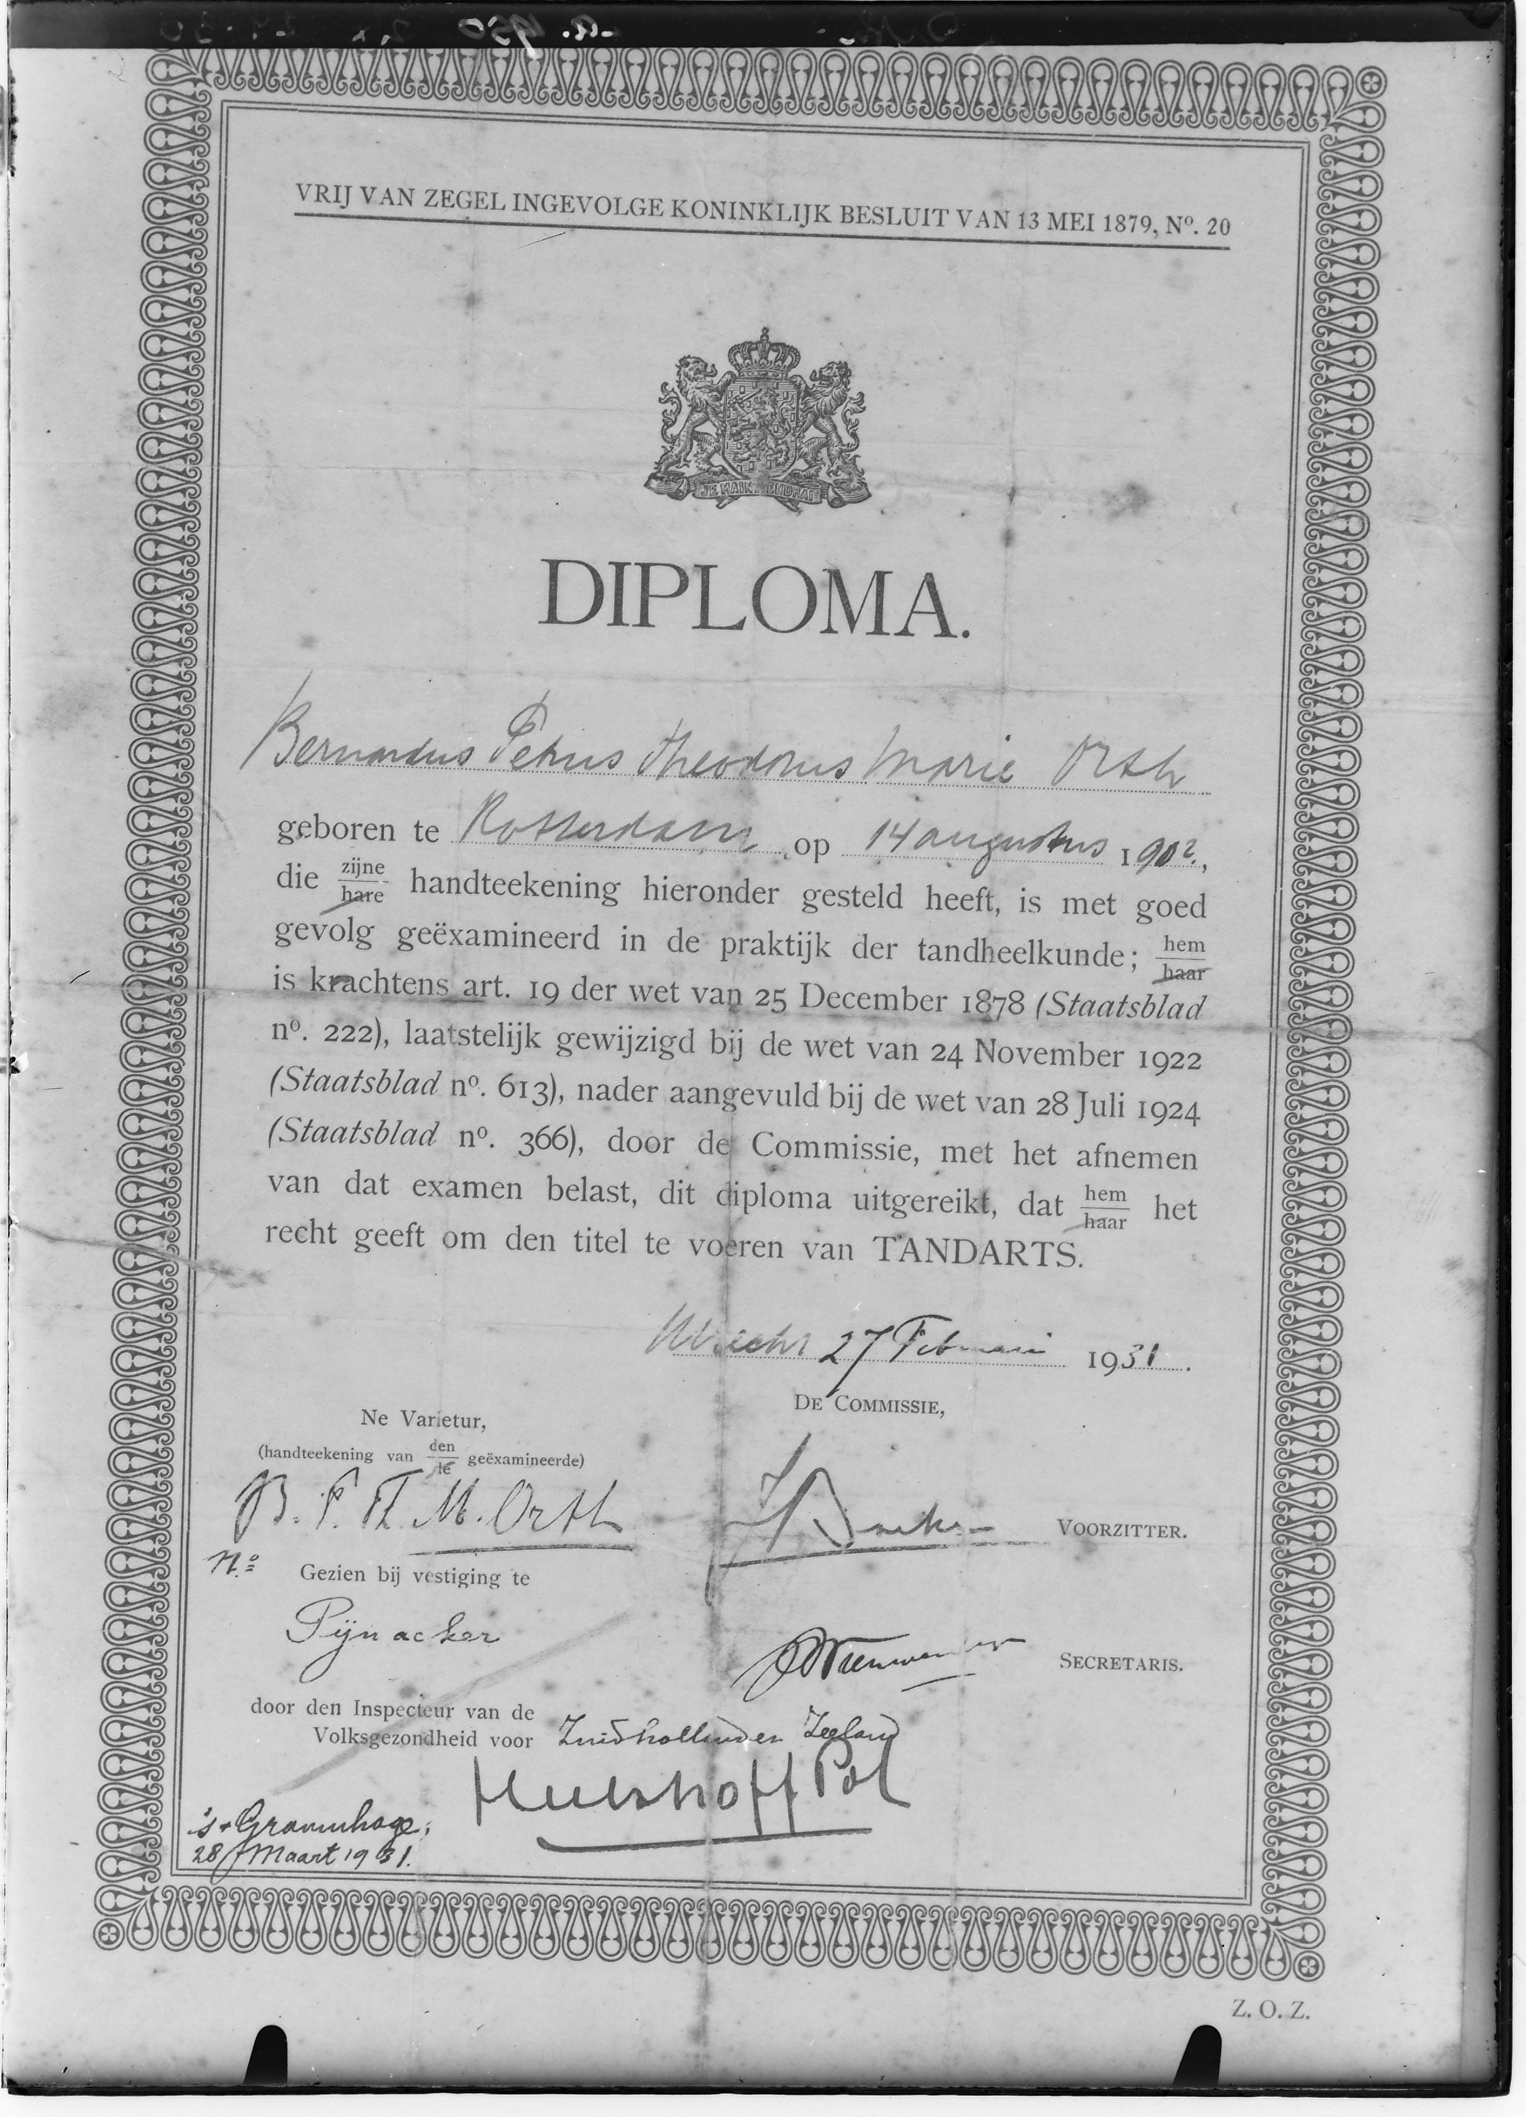 VRIJ VAN ZEGEL INGEVOLGE KONINKLIJK BESLUIT VAN 13 MEI 1879, Nº. 20
JE MAINTIENDRAI
DIPLOMA.
Bernardus Petrus Theodorus Marie Orth
geboren te Rotterdam op 14 augustus 1902,
die zijne/hare handteekening hieronder gesteld heeft, is met goed
gevolg geëxamineerd in de praktijk der tandheelkunde; hem/haar
is krachtens art. 19 der wet van 25 December 1878 (Staatsblad
nº. 222), laatstelijk gewijzigd bij de wet van 24 November 1922
(Staatsblad nº. 613), nader aangevuld bij de wet van 28 Juli 1924
(Staatsblad nº. 366), door de Commissie, met het afnemen
van dat examen belast, dit diploma uitgereikt, dat hem/haar het
recht geeft om den titel te voeren van TANDARTS.
Utrecht 27 Februari 1931.
DE COMMISSIE,
Ne Varietur,
(handteekening van den/de geëxamineerde)
B. P. Th. M. Orth
VOORZITTER.
Nº
Gezien bij vestiging te
Pijnacker
SECRETARIS.
door den Inspecteur van de
Volksgezondheid voor Zuidholland en Zeeland
Hulshoff Pol
's-Gravenhage,
28 Maart 1931.
Z. O. Z.